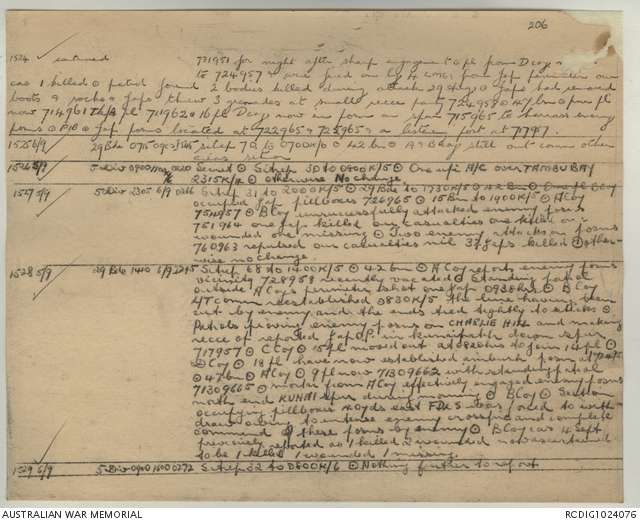 206
1524 continued 721951 for night after sharp engagement pl from D coy
to 724957 was fired on by 4 LMGs from Jap perimeter our
cas 1 killed ⊙ patrol found 2 bodies killed during attacks 29 Aug ⊙ Japs had removed
boots & socks ⊙ Japs threw 3 grenades at small recce party 724958 ⊙
now 714961 pl 719620 16 pl D coy now in posn on spur 715965 to harass enemy
posns ⊙ FIB ⊙ Jap posns located at 722965 725965 listening post at
1525 6/9 29 Bde sitrep 70 to 0700K/6 ⊙ 42 bn ⊙ A & B coy still out comn other
1526 5/9 5 Div 0900 Secret ⊙ Sitrep 30 to 0900K/5 ⊙ One u/i A/C over TAMBU BAY
2315K/4 ⊙ otherwise No change.
1527 5/9 5 Div 2305 6/9 Sitrep 31 to 2000K/5 ⊙ 29 Bde to 1730K/5 ⊙ 42 Bn ⊙ One pl B coy
occupied Jap pillboxes 726965 ⊙ 15 Bn to 1900K/5 ⊙ A coy
754957 ⊙ B coy unsuccessfully attacked enemy posns
751964 one Jap killed our casualties one killed one
wounded one missing ⊙ Two enemy attacks on posns
760963 repulsed our casualties nil 37 Japs killed ⊙ other-
wise no change.
1528 5/9 29 Bde 1410 6/9 2245 Sitrep 68 to 1400K/5 ⊙ 42 bn ⊙ A coy reports enemy posns
vicinity 728958 recently vacated ⊙ Standing patrol
outside A coys perimeter shot one Jap 0938 hrs ⊙ B coy
L/T comn reestablished 0830K/5 the line having been
cut by enemy and the ends tied tightly to sticks ⊙
Patrols proving enemy posns on CHARLIE HILL and making
recce of reported Jap O.P. in kunai patch down spur
717957 ⊙ C coy ⊙ 15 pl moved out at 0800 hrs to join 14 pl ⊙
D coy ⊙ 18 pl have now established ambush posn at
⊙ 47 bn ⊙ A coy ⊙ 9 pl now 71309662 with standing patrol
71309665 ⊙ mortar from A coy effectively engaged enemy posns
north end KUNAI spur during morning ⊙ B coy ⊙ Section
occupying pillboxes 40 yds east FDLS was forced to with-
draw owing to intense enemy crossfire and complete
command of these posns by enemy ⊙ B coy cas 4 Sept
previously reported as 1 killed 2 wounded now ascertained
to be 1 killed 1 wounded 1 missing.
1529 6/9 5 Div 0900 1500 0272 Sitrep 32 to 0800K/6 ⊙ Nothing further to report
AUSTRALIAN WAR MEMORIAL RCDIG1024076